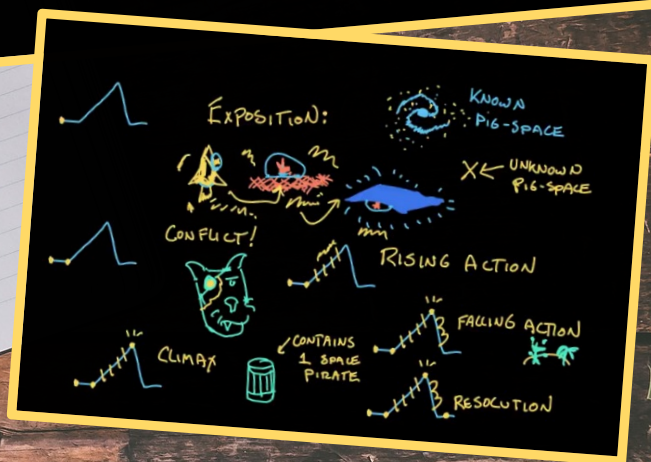 EXPOSITION:
KNOWN
PIG-SPACE
X ← UNKNOWN
PIG-SPACE
CONFLICT!
RISING ACTION
CLIMAX
CONTAINS
1 SPACE
PIRATE
FALLING ACTION
RESOLUTION